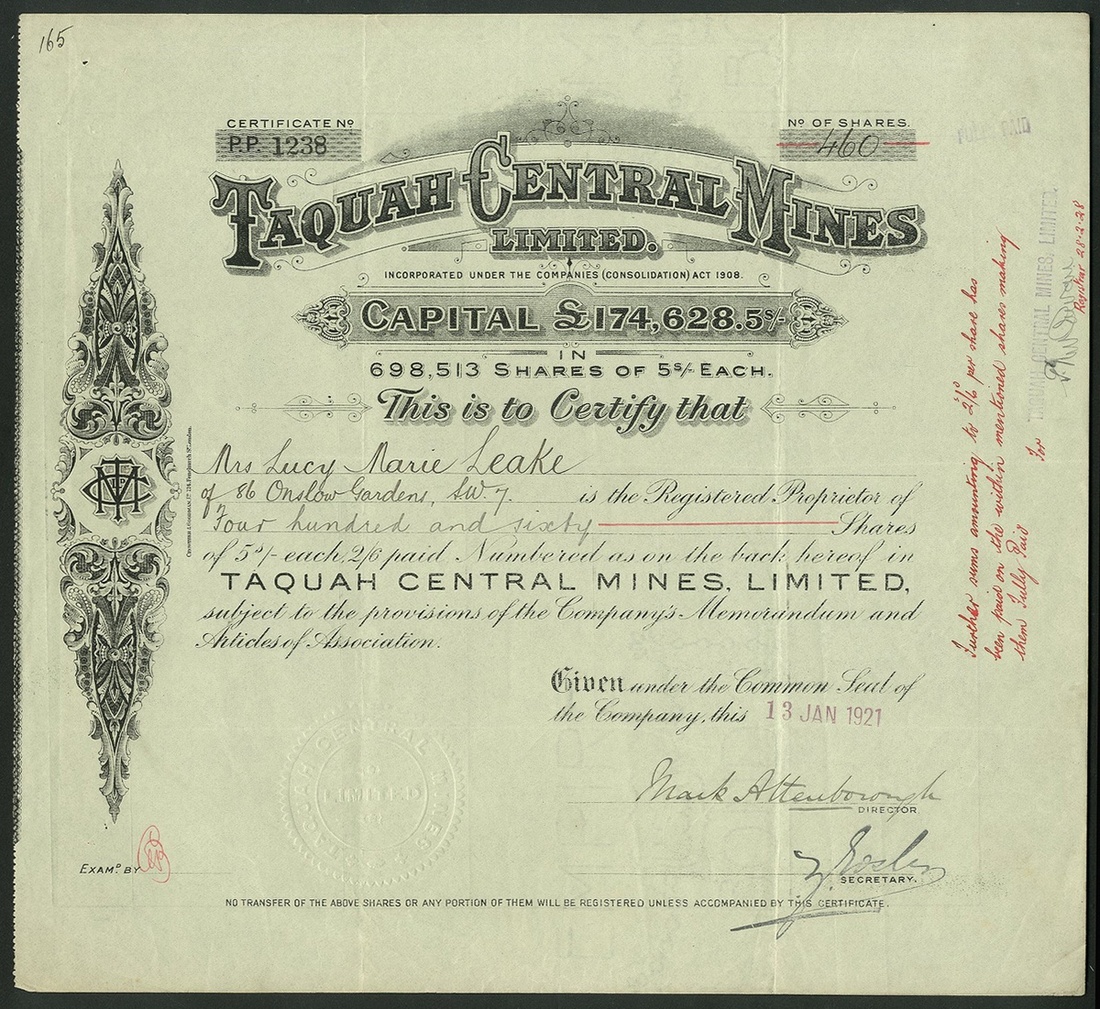 165
CERTIFICATE Nº
P.P. 1238
Nº OF SHARES.
460
FULLY PAID
TAQUAH CENTRAL MINES
LIMITED.
INCORPORATED UNDER THE COMPANIES (CONSOLIDATION) ACT 1908.
CAPITAL £174,628.5s/-
IN
698,513 SHARES OF 5s/- EACH.
This is to Certify that
Mrs Lucy Marie Leake
of 86 Onslow Gardens, S.W. 7. is the Registered Proprietor of
Four hundred and sixty Shares
of 5s/- each, 2/6 paid Numbered as on the back hereof in
TAQUAH CENTRAL MINES, LIMITED,
subject to the provisions of the Company's Memorandum and
Articles of Association.
Given under the Common Seal of
the Company, this 13 JAN 1921
Mark Attenborough
DIRECTOR.
SECRETARY.
EXAMD BY
NO TRANSFER OF THE ABOVE SHARES OR ANY PORTION OF THEM WILL BE REGISTERED UNLESS ACCOMPANIED BY THIS CERTIFICATE.
TAQUAH CENTRAL MINES
LIMITED
Further sums amounting to 2/6 per share has
been paid on the within mentioned shares making
them Fully Paid
For
TAQUAH CENTRAL MINES, LIMITED.
Registrar 28.2.28